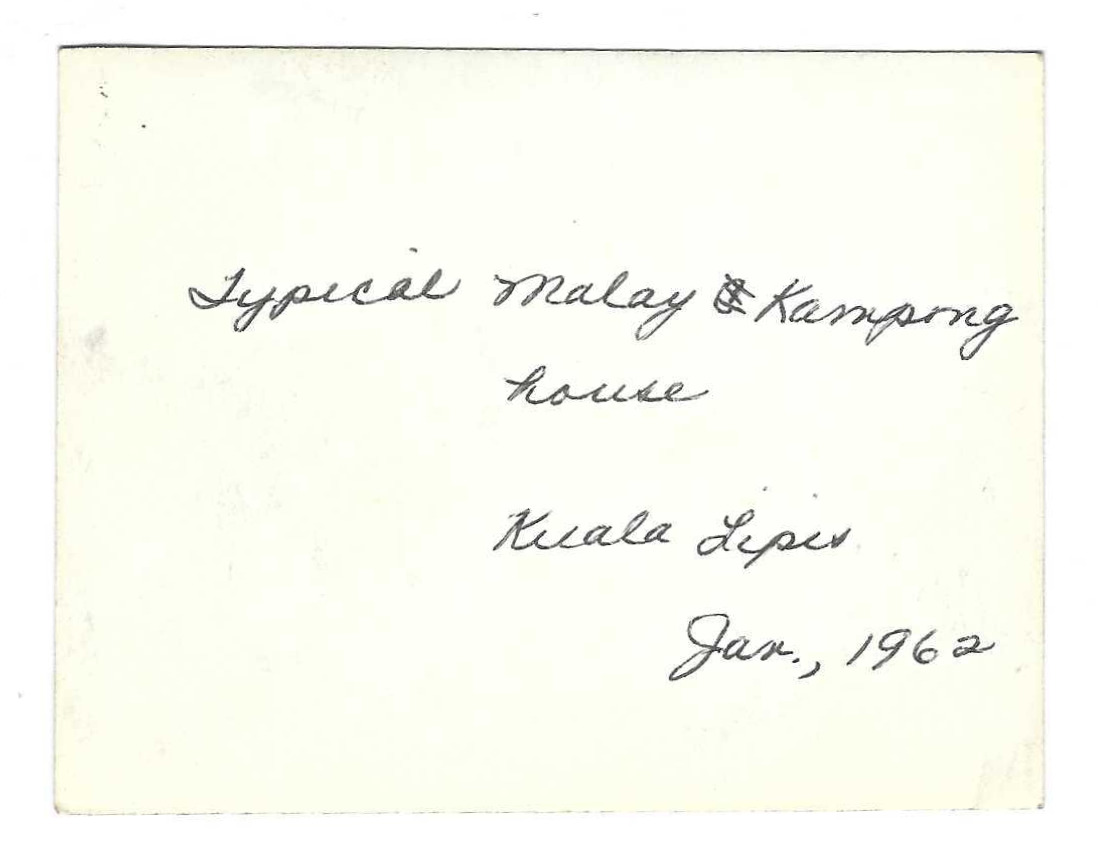 Typical Malay Kampong
house
Kuala Lipis
Jan., 1962